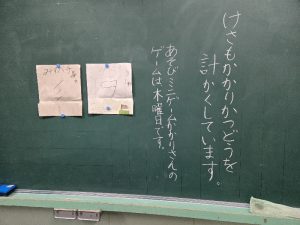 けさもかかりかつどうを
計かくしています。
あそびミニゲームかかりさんの
ゲームは、木曜日です。